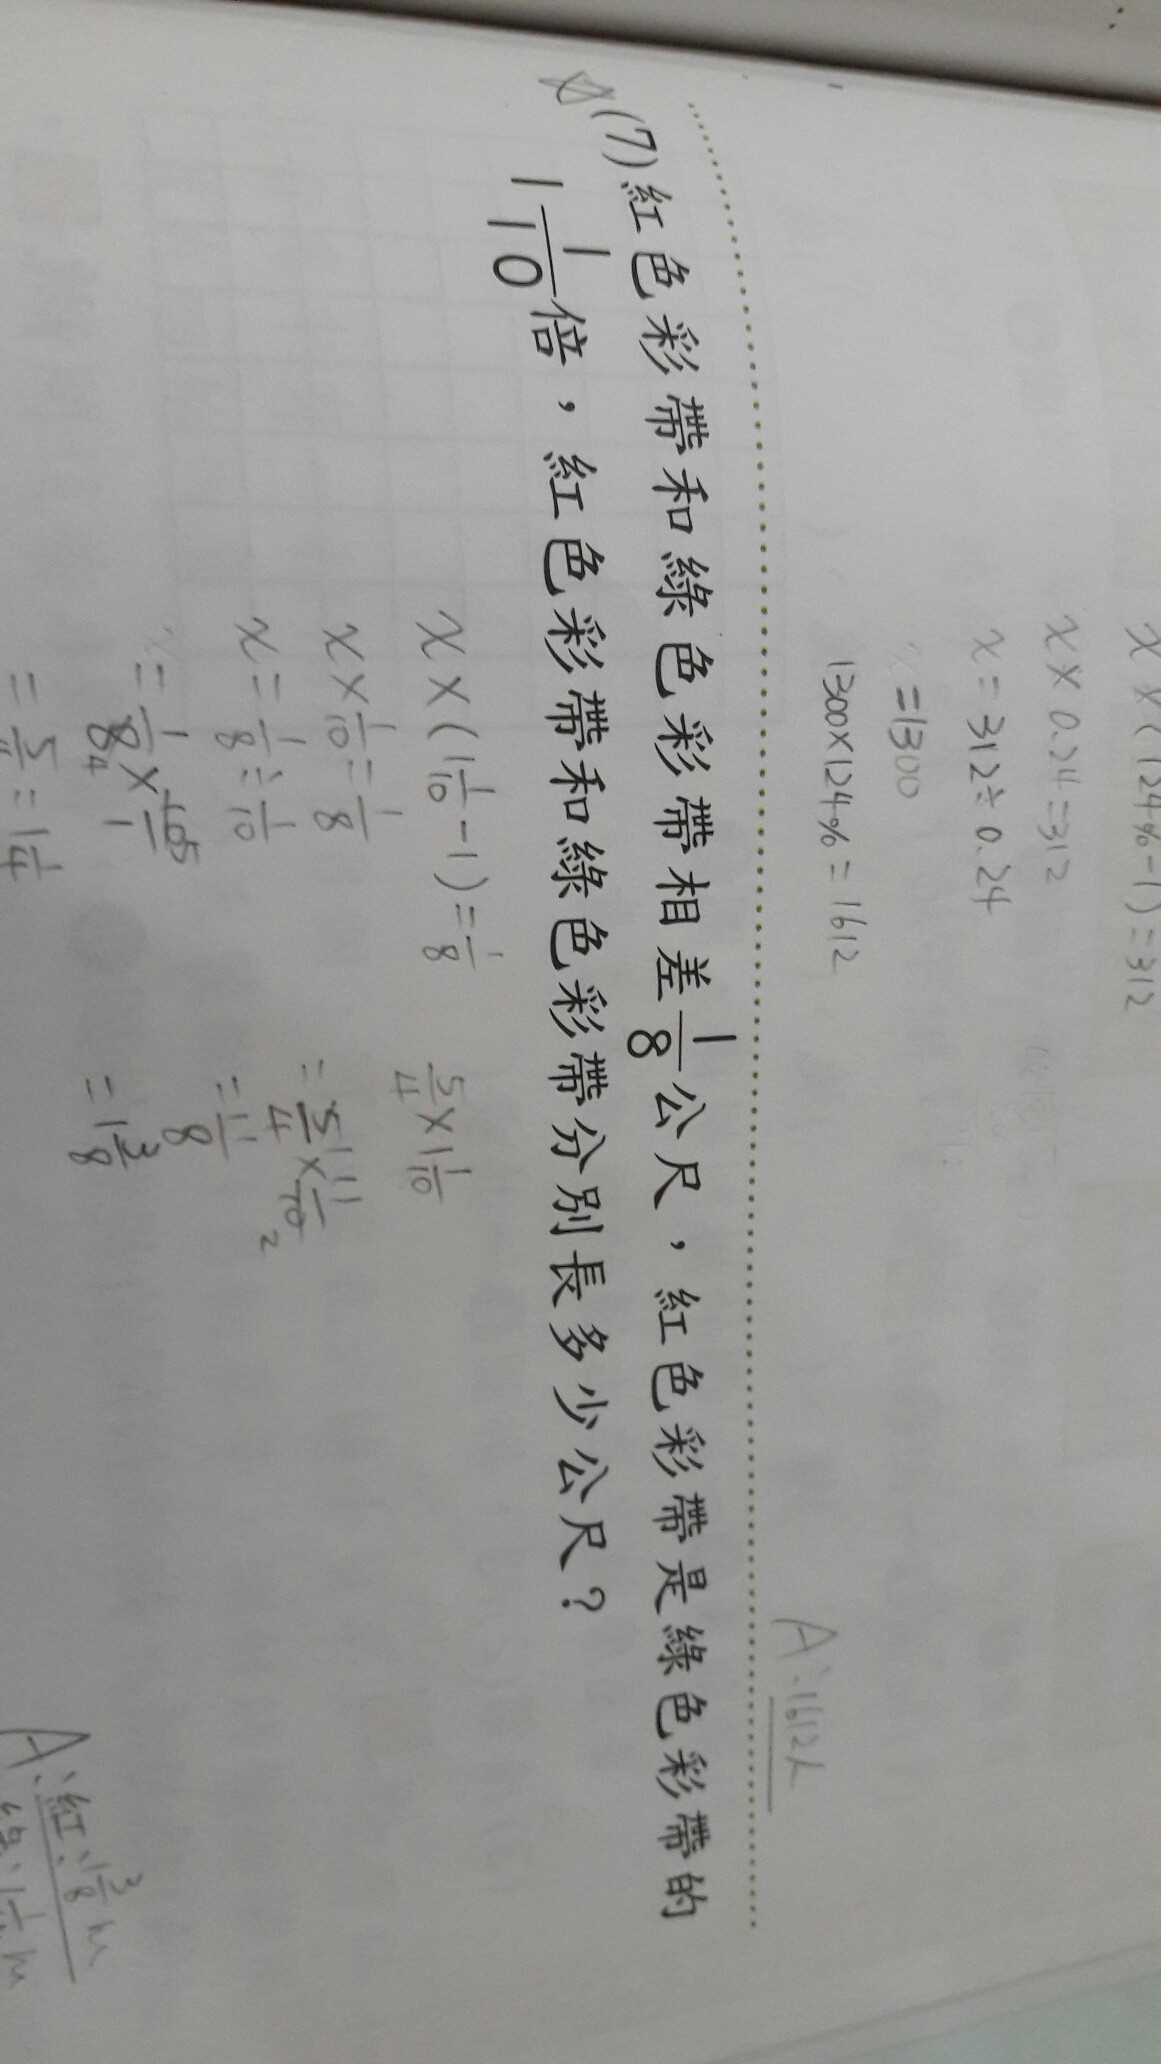 x×(124%-1)=312
x×0.24=312
x=312÷0.24
x=1300
1300×124%=1612
A:1612人
(7)紅色彩帶和綠色彩帶相差1/8公尺,紅色彩帶是綠色彩帶的
1 1/10倍,紅色彩帶和綠色彩帶分別長多少公尺?
x×(1 1/10-1)=1/8
x×1/10=1/8
x=1/8÷1/10
x=1/8×10/1
=5/4=1 1/4
5/4×1 1/10
=5/4×11/10
=11/8
=1 3/8
A:紅:1 3/8 m